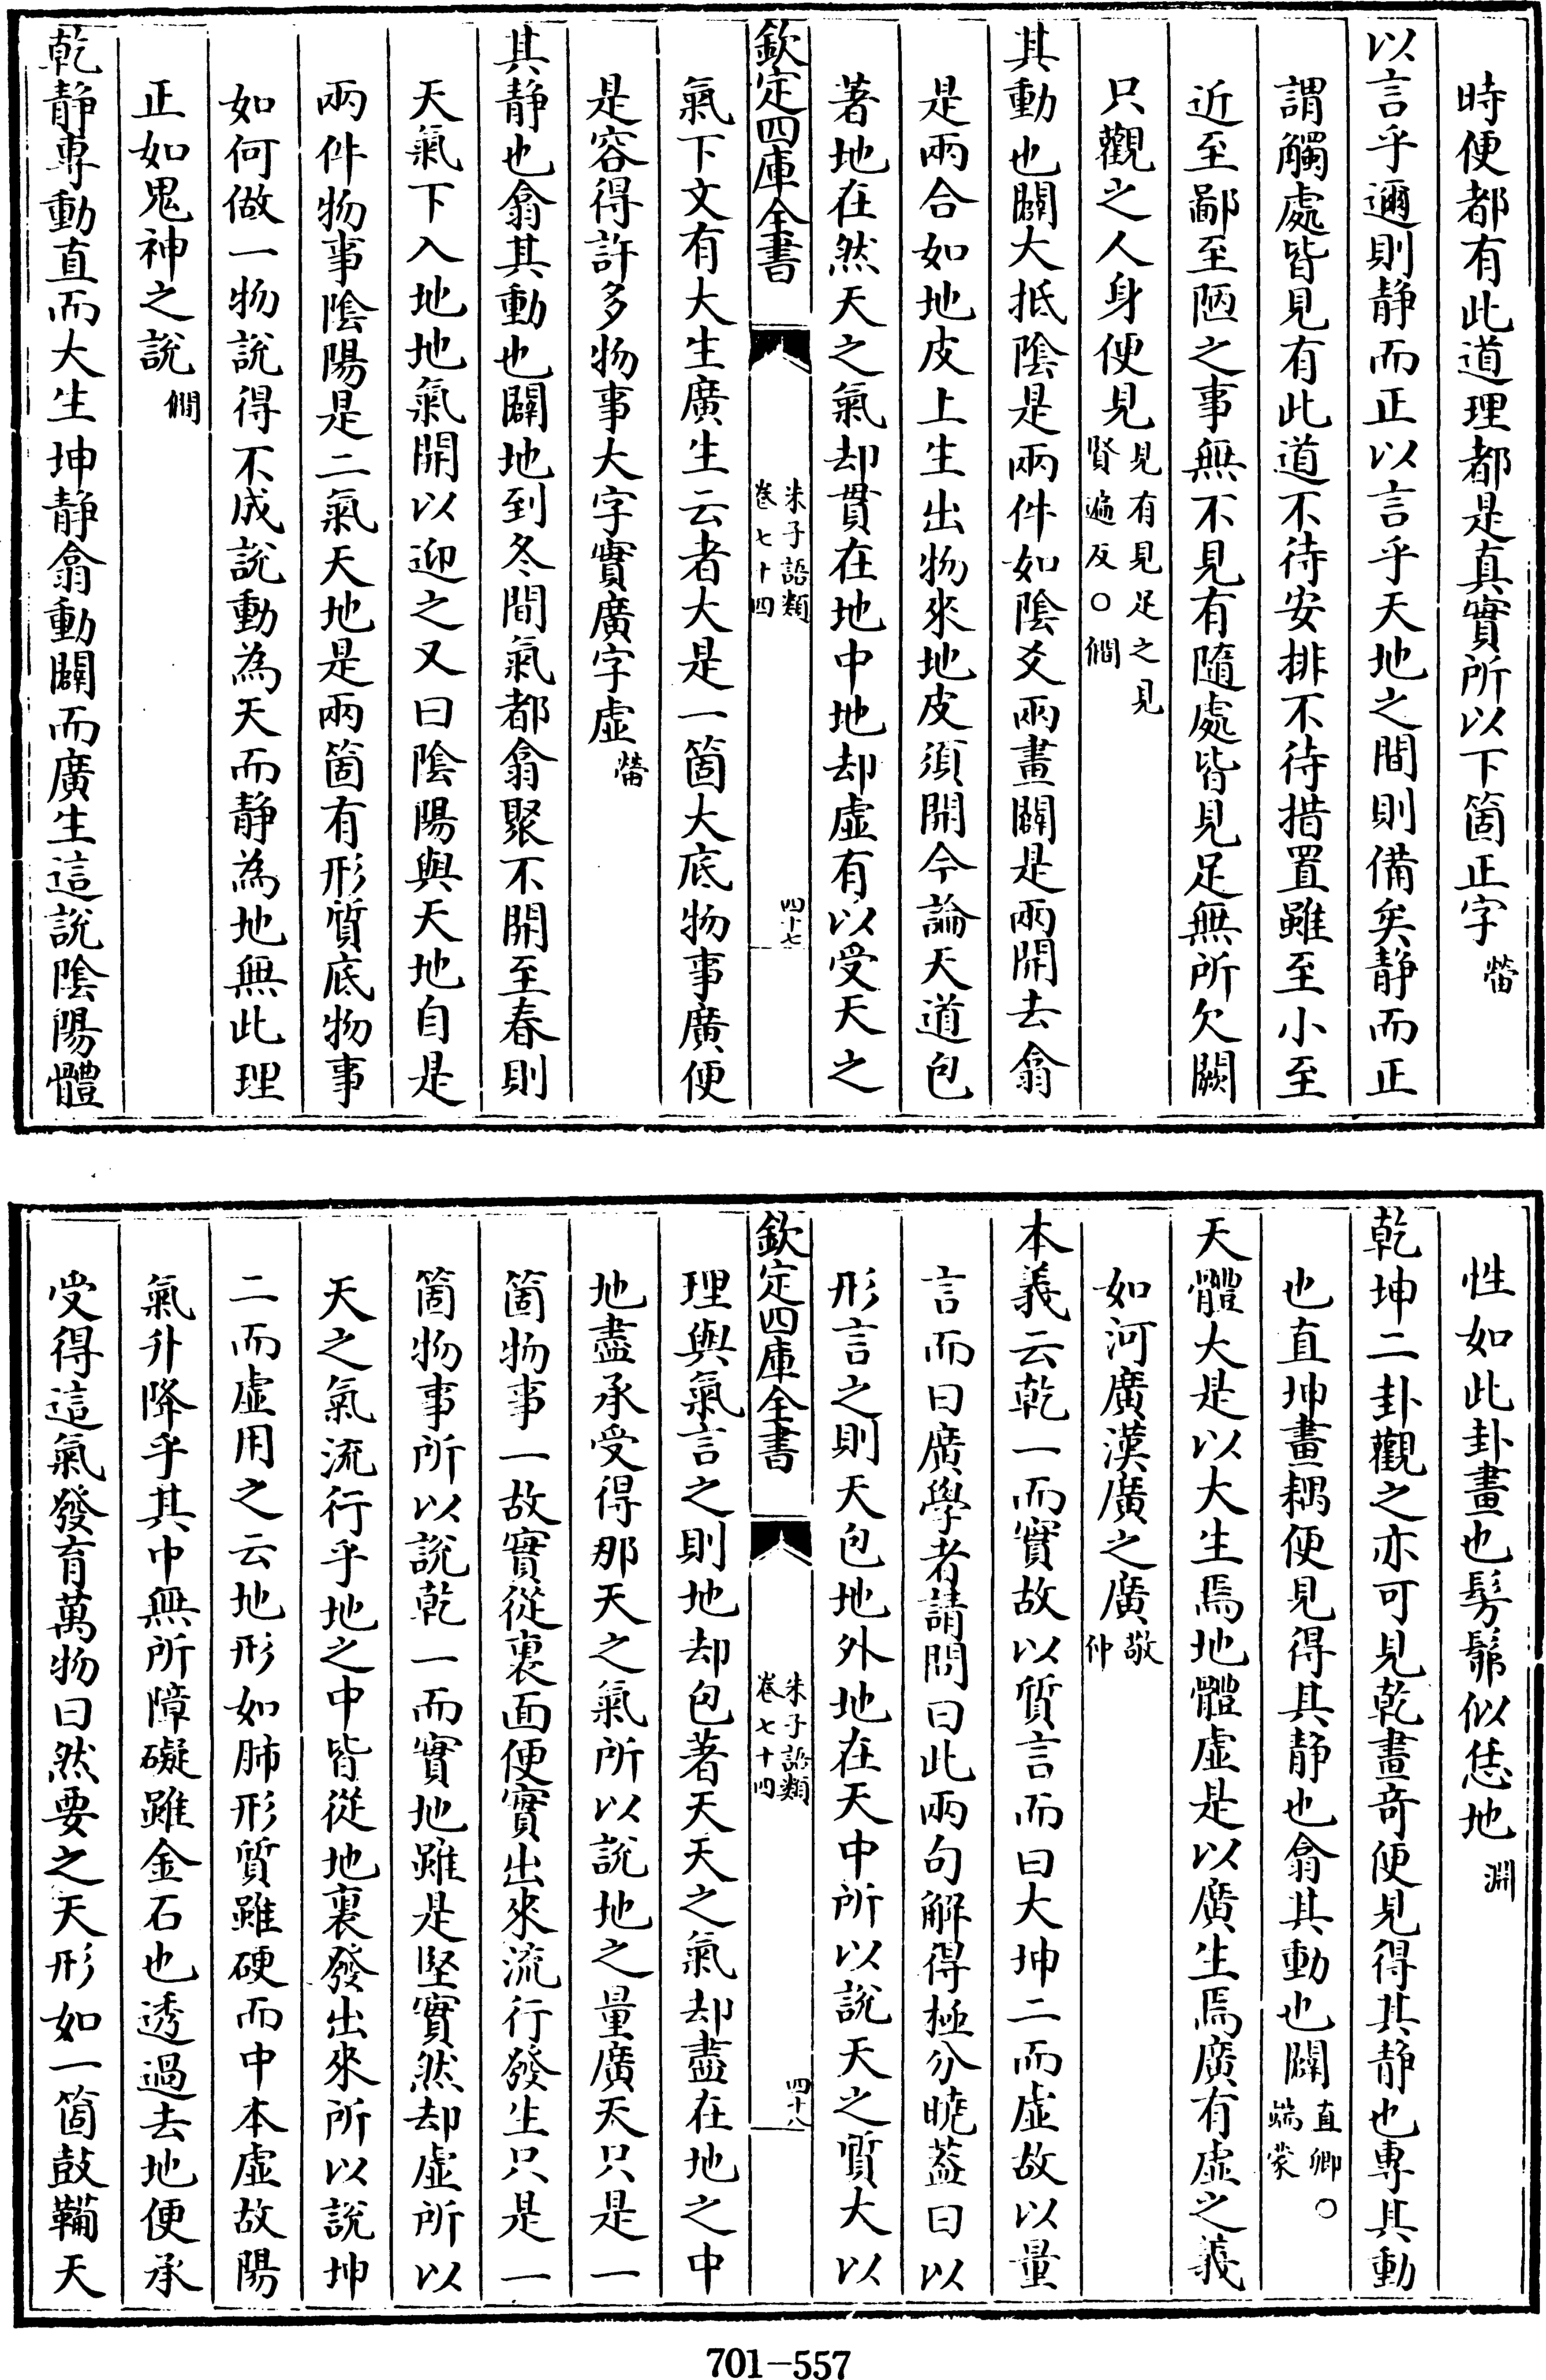 時便都有此道理都是真實所以下箇正字㽦
以言乎邇則静而正以言乎天地之間則備矣静而正
謂觸處皆見有此道不待安排不待措置雖至小至
近至鄙至陋之事無不見有隨處皆見足無所欠闕
只觀之人身便見見有見足之見賢遍反○僩
其動也闢大抵陰是兩件如陰爻兩畫闢是兩開去翕
是兩合如地皮上生出物來地皮須開今論天道包
著地在然天之氣却貫在地中地却虛有以受天之
欽定四庫全書
朱子語類
卷七十四
四十七
氣下文有大生廣生云者大是一箇大底物事廣便
是容得許多物事大字實廣字虛㽦
其静也翕其動也闢地到冬間氣都翕聚不開至春則
天氣下入地地氣開以迎之又曰陰陽與天地自是
兩件物事陰陽是二氣天地是兩箇有形質底物事
如何做一物說得不成說動為天而静為地無此理
正如鬼神之說僩
乾静專動直而大生坤静翕動闢而廣生這說陰陽體
性如此卦畫也髣髴似恁地淵
乾坤二卦觀之亦可見乾畫奇便見得其静也專其動
也直坤畫耦便見得其静也翕其動也闢直卿○端蒙
天體大是以大生焉地體虛是以廣生焉廣有虛之義
如河廣漢廣之廣敬仲
本義云乾一而實故以質言而曰大坤二而虛故以量
言而曰廣學者請問曰此兩句解得極分曉葢曰以
形言之則天包地外地在天中所以說天之質大以
欽定四庫全書
朱子語類
卷七十四
四十八
理與氣言之則地却包著天天之氣却盡在地之中
地盡承受得那天之氣所以說地之量廣天只是一
箇物事一故實從裏面便實出來流行發生只是一
箇物事所以說乾一而實地雖是堅實然却虛所以
天之氣流行乎地之中皆從地裏發出來所以說坤
二而虛用之云地形如肺形質雖硬而中本虛故陽
氣升降乎其中無所障礙雖金石也透過去地便承
受得這氣發育萬物曰然要之天形如一箇鼓鞴天
701-557